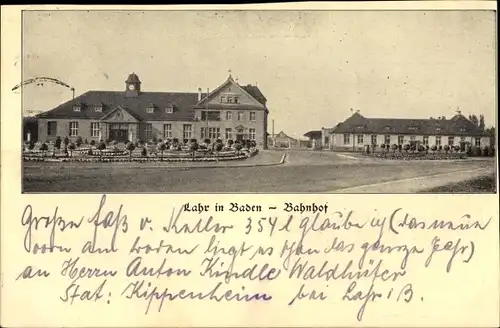 Lahr in Baden – Bahnhof
Große Faß v. Keller 354 l Glaube ich (das neue
vorn am Boden liegt es offen das ganze Jahr)
an Herrn Anton Kindle Waldhüter
Stat: Kippenheim bei Lahr i/B.